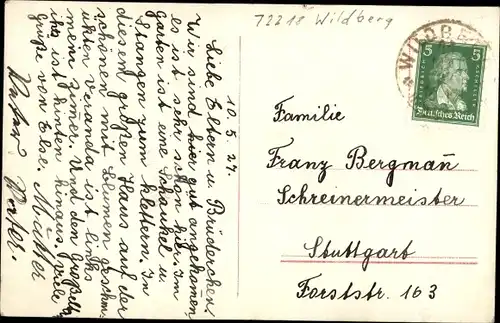 10.5.27.
Liebe Eltern u. Brüderchen.
Wir sind hier gut angekommen
es ist sehr schön hier im
garten ist eine Schaukel u.
Stangen zum klettern. In
diesem großen Haus auf der
schönen mit Blumen geschm.
ukten Veranda ist links
mein Zimer. Und den Großelt.
ihrs ist hinten hinaus. Viele
Grüße von Else. Mutter
Vater.
72218 Wildberg
WILDBE
5 5
Deutsches Reich
Familie
Franz Bergmañ
Schreinermeister
Stuttgart
Forststr. 163